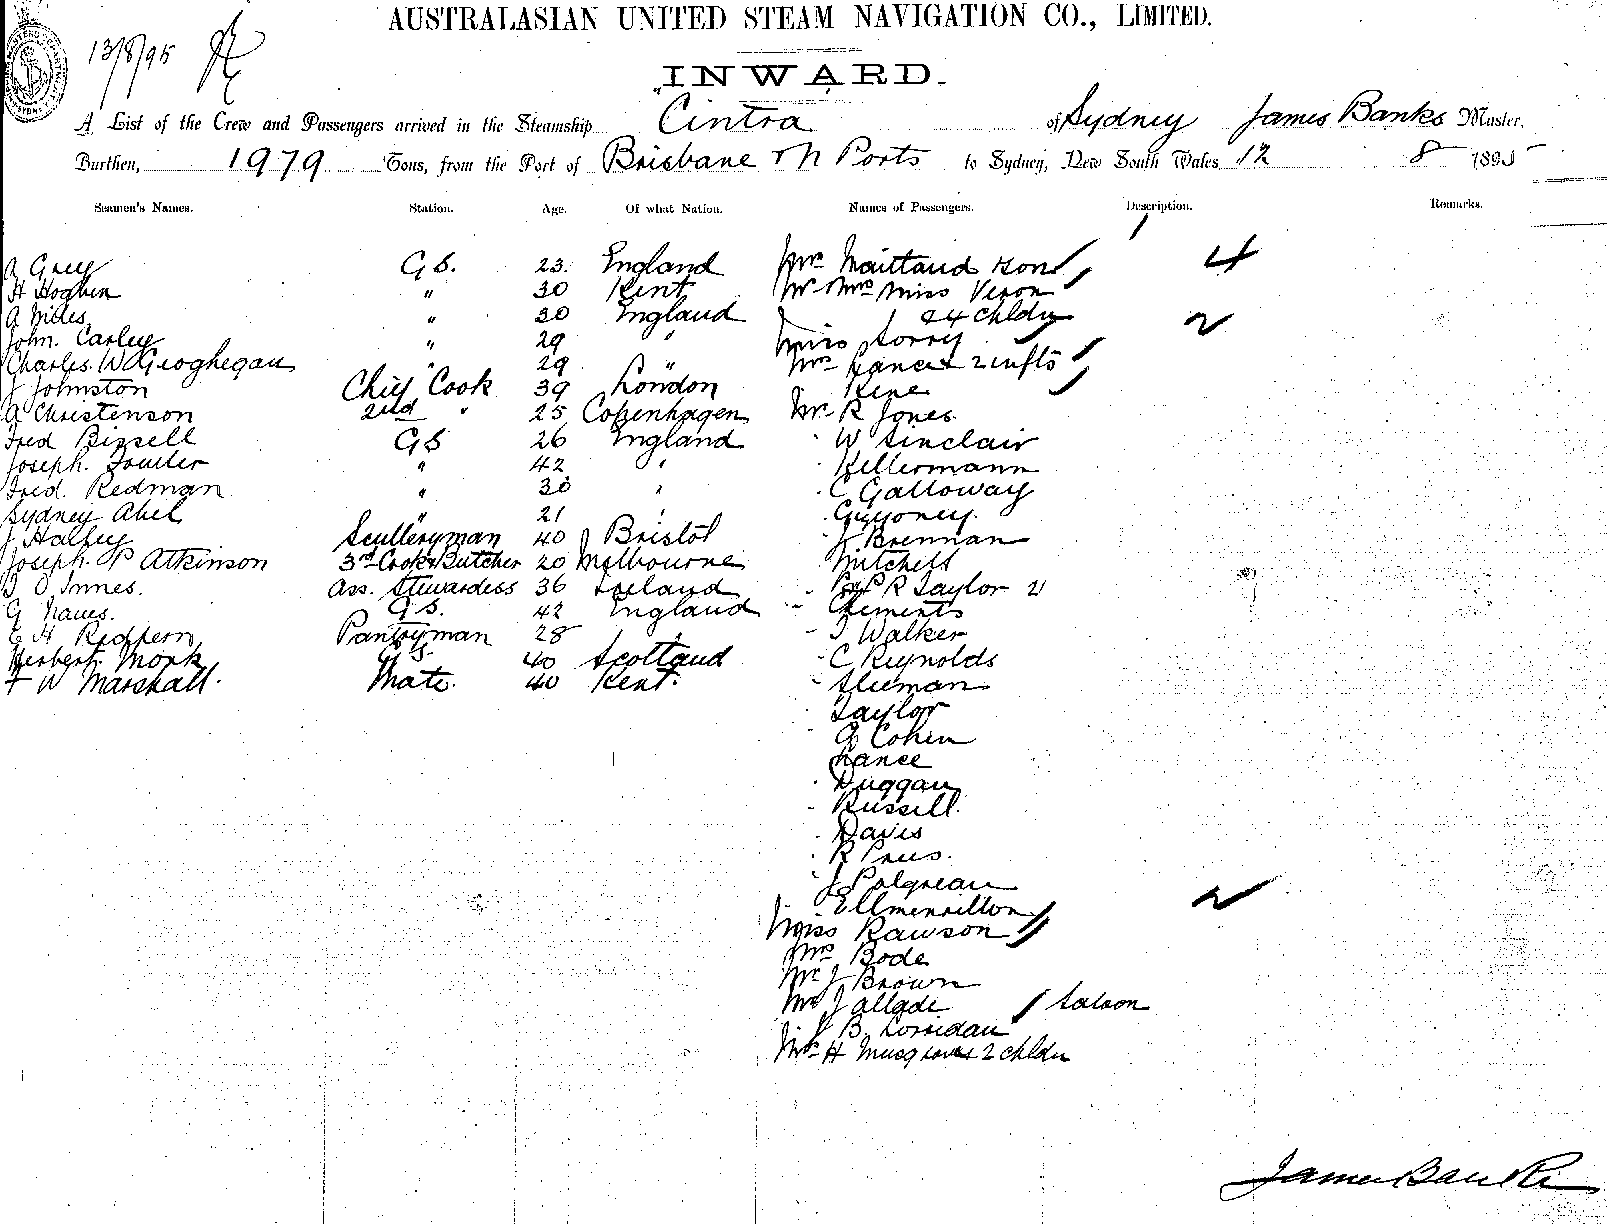 AUSTRALASIAN UNITED STEAM NAVIGATION CO., LIMITED.
13/8/95
INWARD.
A List of the Crew and Passengers arrived in the Steamship Cintra of Sydney James Banks Master,
Burthen, 1979 Tons, from the Port of Brisbane & N Ports to Sydney, New South Wales 12 8 1895
Seamen's Names. Station. Age. Of what Nation. Names of Passengers. Description. Remarks.
A Grey G S. 23 England Mrs Maitland & son 4
H Hogben " 30 Kent Mr Mrs Miss Veron
A " 30 England & 4 chldn 2
John. Carley " 29 " Miss
Charles. W. Geoghegan " 29 " Mrs Lance & 2 infts
J Johnston Chief Cook 39 London
A Christenson 2nd " 25 Copenhagen Mr R Jones
Fred Bissell G S 26 England " W Sinclair
Joseph. " 42 " " Kellermann
Fred. Redman " 30 " " C Galloway
Sydney Abel " 21 "
J Sculleryman 40 Bristol " J Brennan
Joseph. P Atkinson 3rd Cook & Butcher 20 Melbourne Mitchell
O Innes. Ass. Stewardess 36 " R Taylor
G G S. 42 England " Clements
E H Redfern Pantryman 28 " J Walker
Herbert. Monk G S. 40 Scotland " C Reynolds
F W Marshall. Mate. 40 Kent. " Sleeman
Taylor
" G Cohen
Lance
" Duggan
" Russell.
" Davis
" R
" J
2
Miss Rawson
Mrs Bode
Mr J Brown
Mr J Saloon
" B.
Mrs H Musgrove & 2 chldn
James Banks